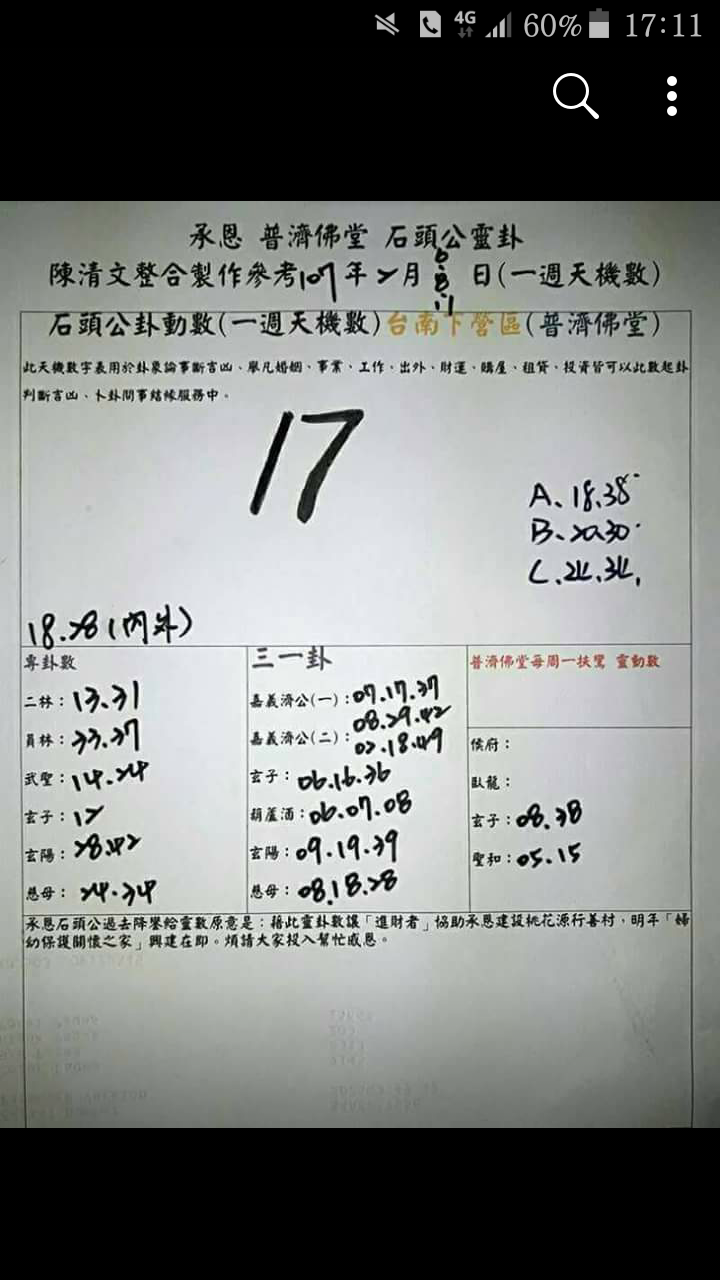 4G 60% 17:11
承恩 普濟佛堂 石頭公靈卦
陳清文整合製作參考107年2月6.8.11日(一週天機數)
石頭公卦動數(一週天機數)台南下營區(普濟佛堂)
此天機數字表用於卦象論事斷吉凶、舉凡婚姻、事業、工作、出外、財運、購屋、租貸、投資皆可以此數起卦
判斷吉凶、卜卦問事結緣服務中。
17
A、18.38
B、20.30
C.24.34.
18.28(內外)
專卦數
二林：13.31
員林：33.37
武聖：14.24
玄子：12
玄陽：28.42
慈母：24.34
三一卦
嘉義濟公(一)：07.17.37
08.29.42
嘉義濟公(二)：02.18.49
玄子：06.16.36
葫蘆酒：06.07.08
玄陽：09.19.39
慈母：08.18.28
普濟佛堂每周一扶鸞 靈動數
侯府：
臥龍：
玄子：08.38
聖和：05.15
承恩石頭公過去降鑾給靈數原意是：藉此靈卦數讓「進財者」協助承恩建設桃花源行善村，明年「婦
幼保護關懷之家」興建在即。煩請大家投入幫忙感恩。